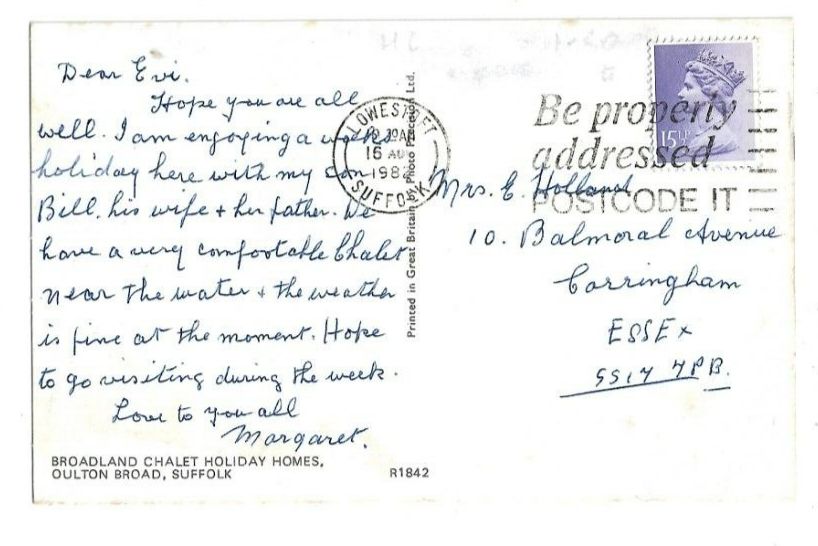 Dear Evi.
Hope you are all
well. I am enjoying a weeks
holiday here with my son
Bill, his wife + her father. We
have a very comfortable Chalet
near the water + the weather
is fine at the moment. Hope
to go visiting during the week.
Love to you all
Margaret.
BROADLAND CHALET HOLIDAY HOMES,
OULTON BROAD, SUFFOLK
R1842
Printed in Great Britain by Photo Precision Ltd.
LOWESTOFT
16 AU
SUFFOLK
15½P
Be properly
addressed
POSTCODE IT
Mrs. E. Holland
10. Balmoral Avenue
Corringham
ESSEX
SS17 7PB.